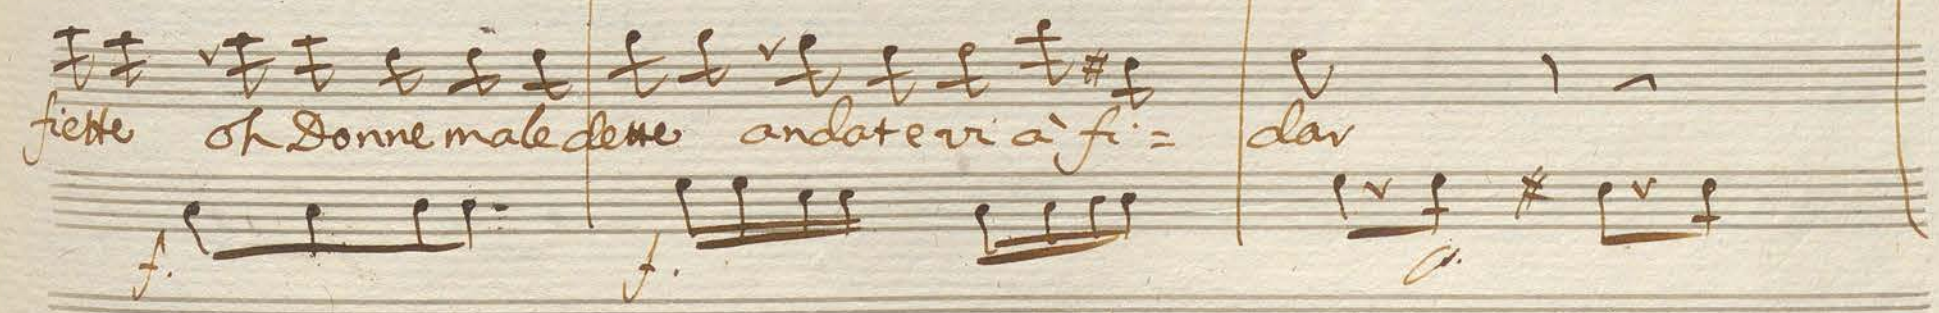 fiette oh Donne maledette andatevi à fi= dar
f. f. p.